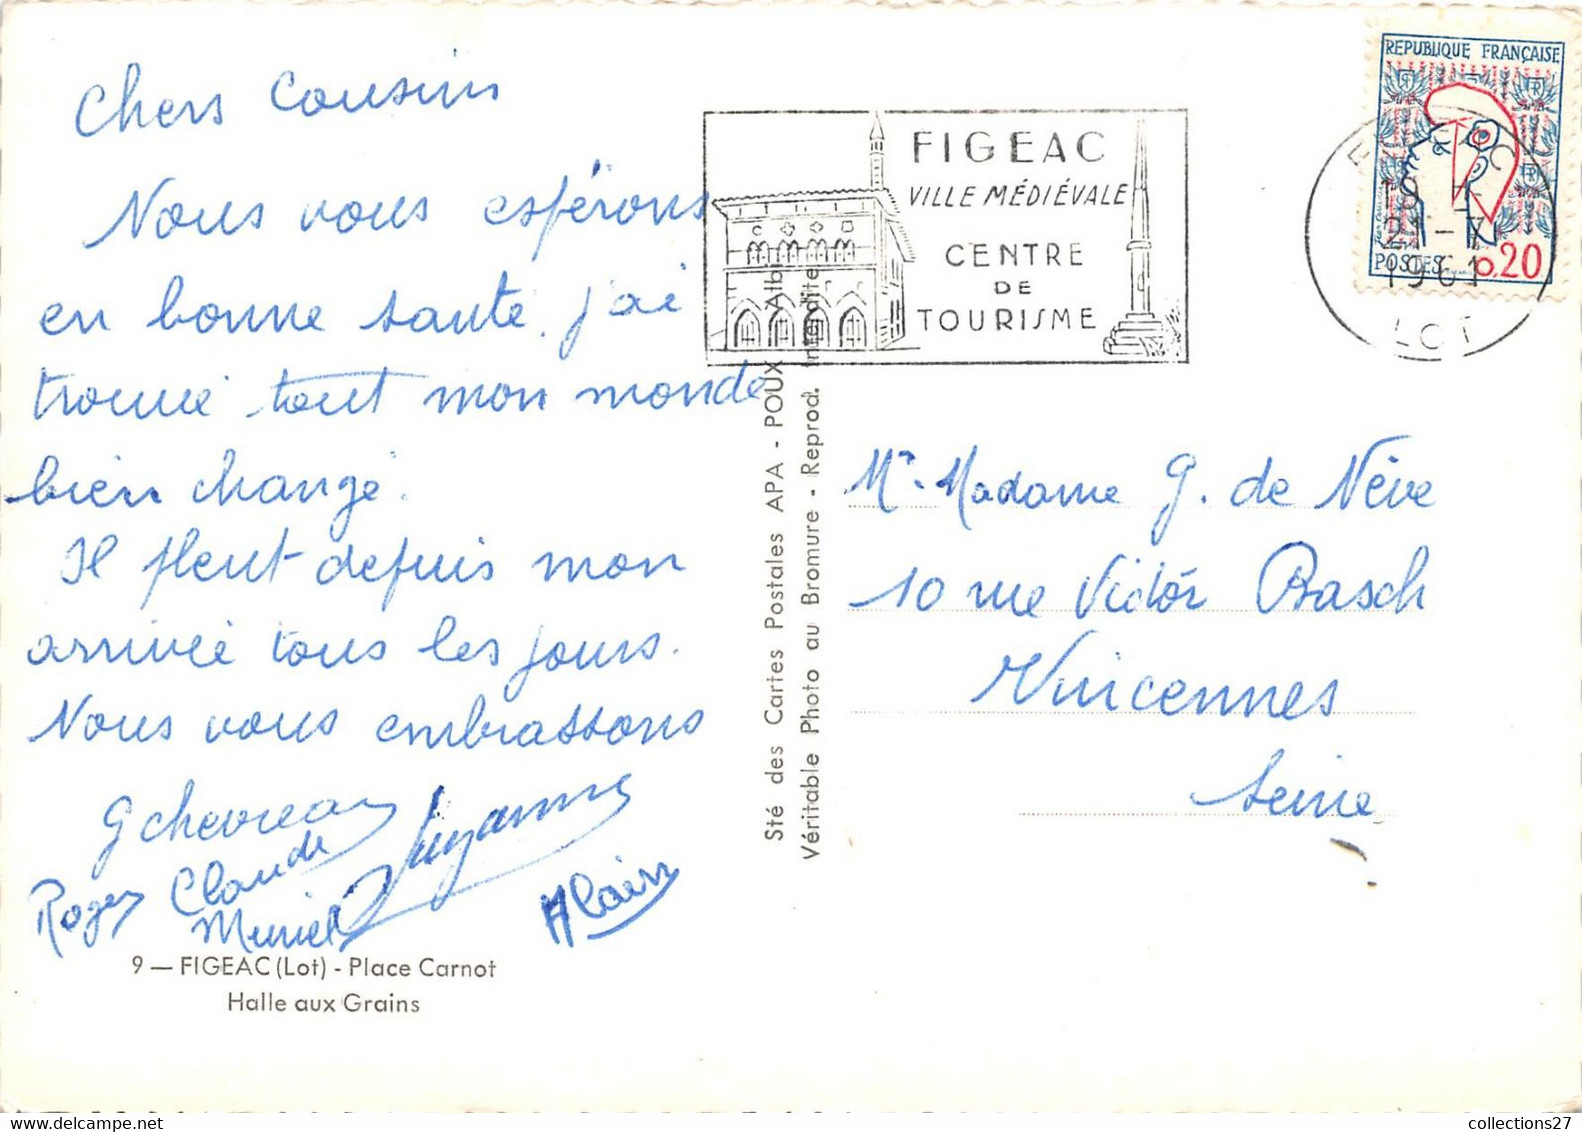 Chers Cousins
Nous vous espérons
en bonne santé. j'ai
trouvé tout mon monde
bien changé.
Il pleut depuis mon
arrivée tous les jours.
Nous vous embrassons
G Chevreau
Suzanne
Roger Claude
Muriel
Alain
9 — FIGEAC (Lot) - Place Carnot
Halle aux Grains
Sté des Cartes Postales APA - POUX - Albi
Véritable Photo au Bromure - Reprod. interdite
FIGEAC
VILLE MÉDIÉVALE
CENTRE
DE
TOURISME
REPUBLIQUE FRANÇAISE
POSTES 0,20
FIGEAC
19 H
21 - 7
1961
LOT
Mr. Madame G. de Nève
10 rue Victor Basch
Vincennes
Seine
collections27